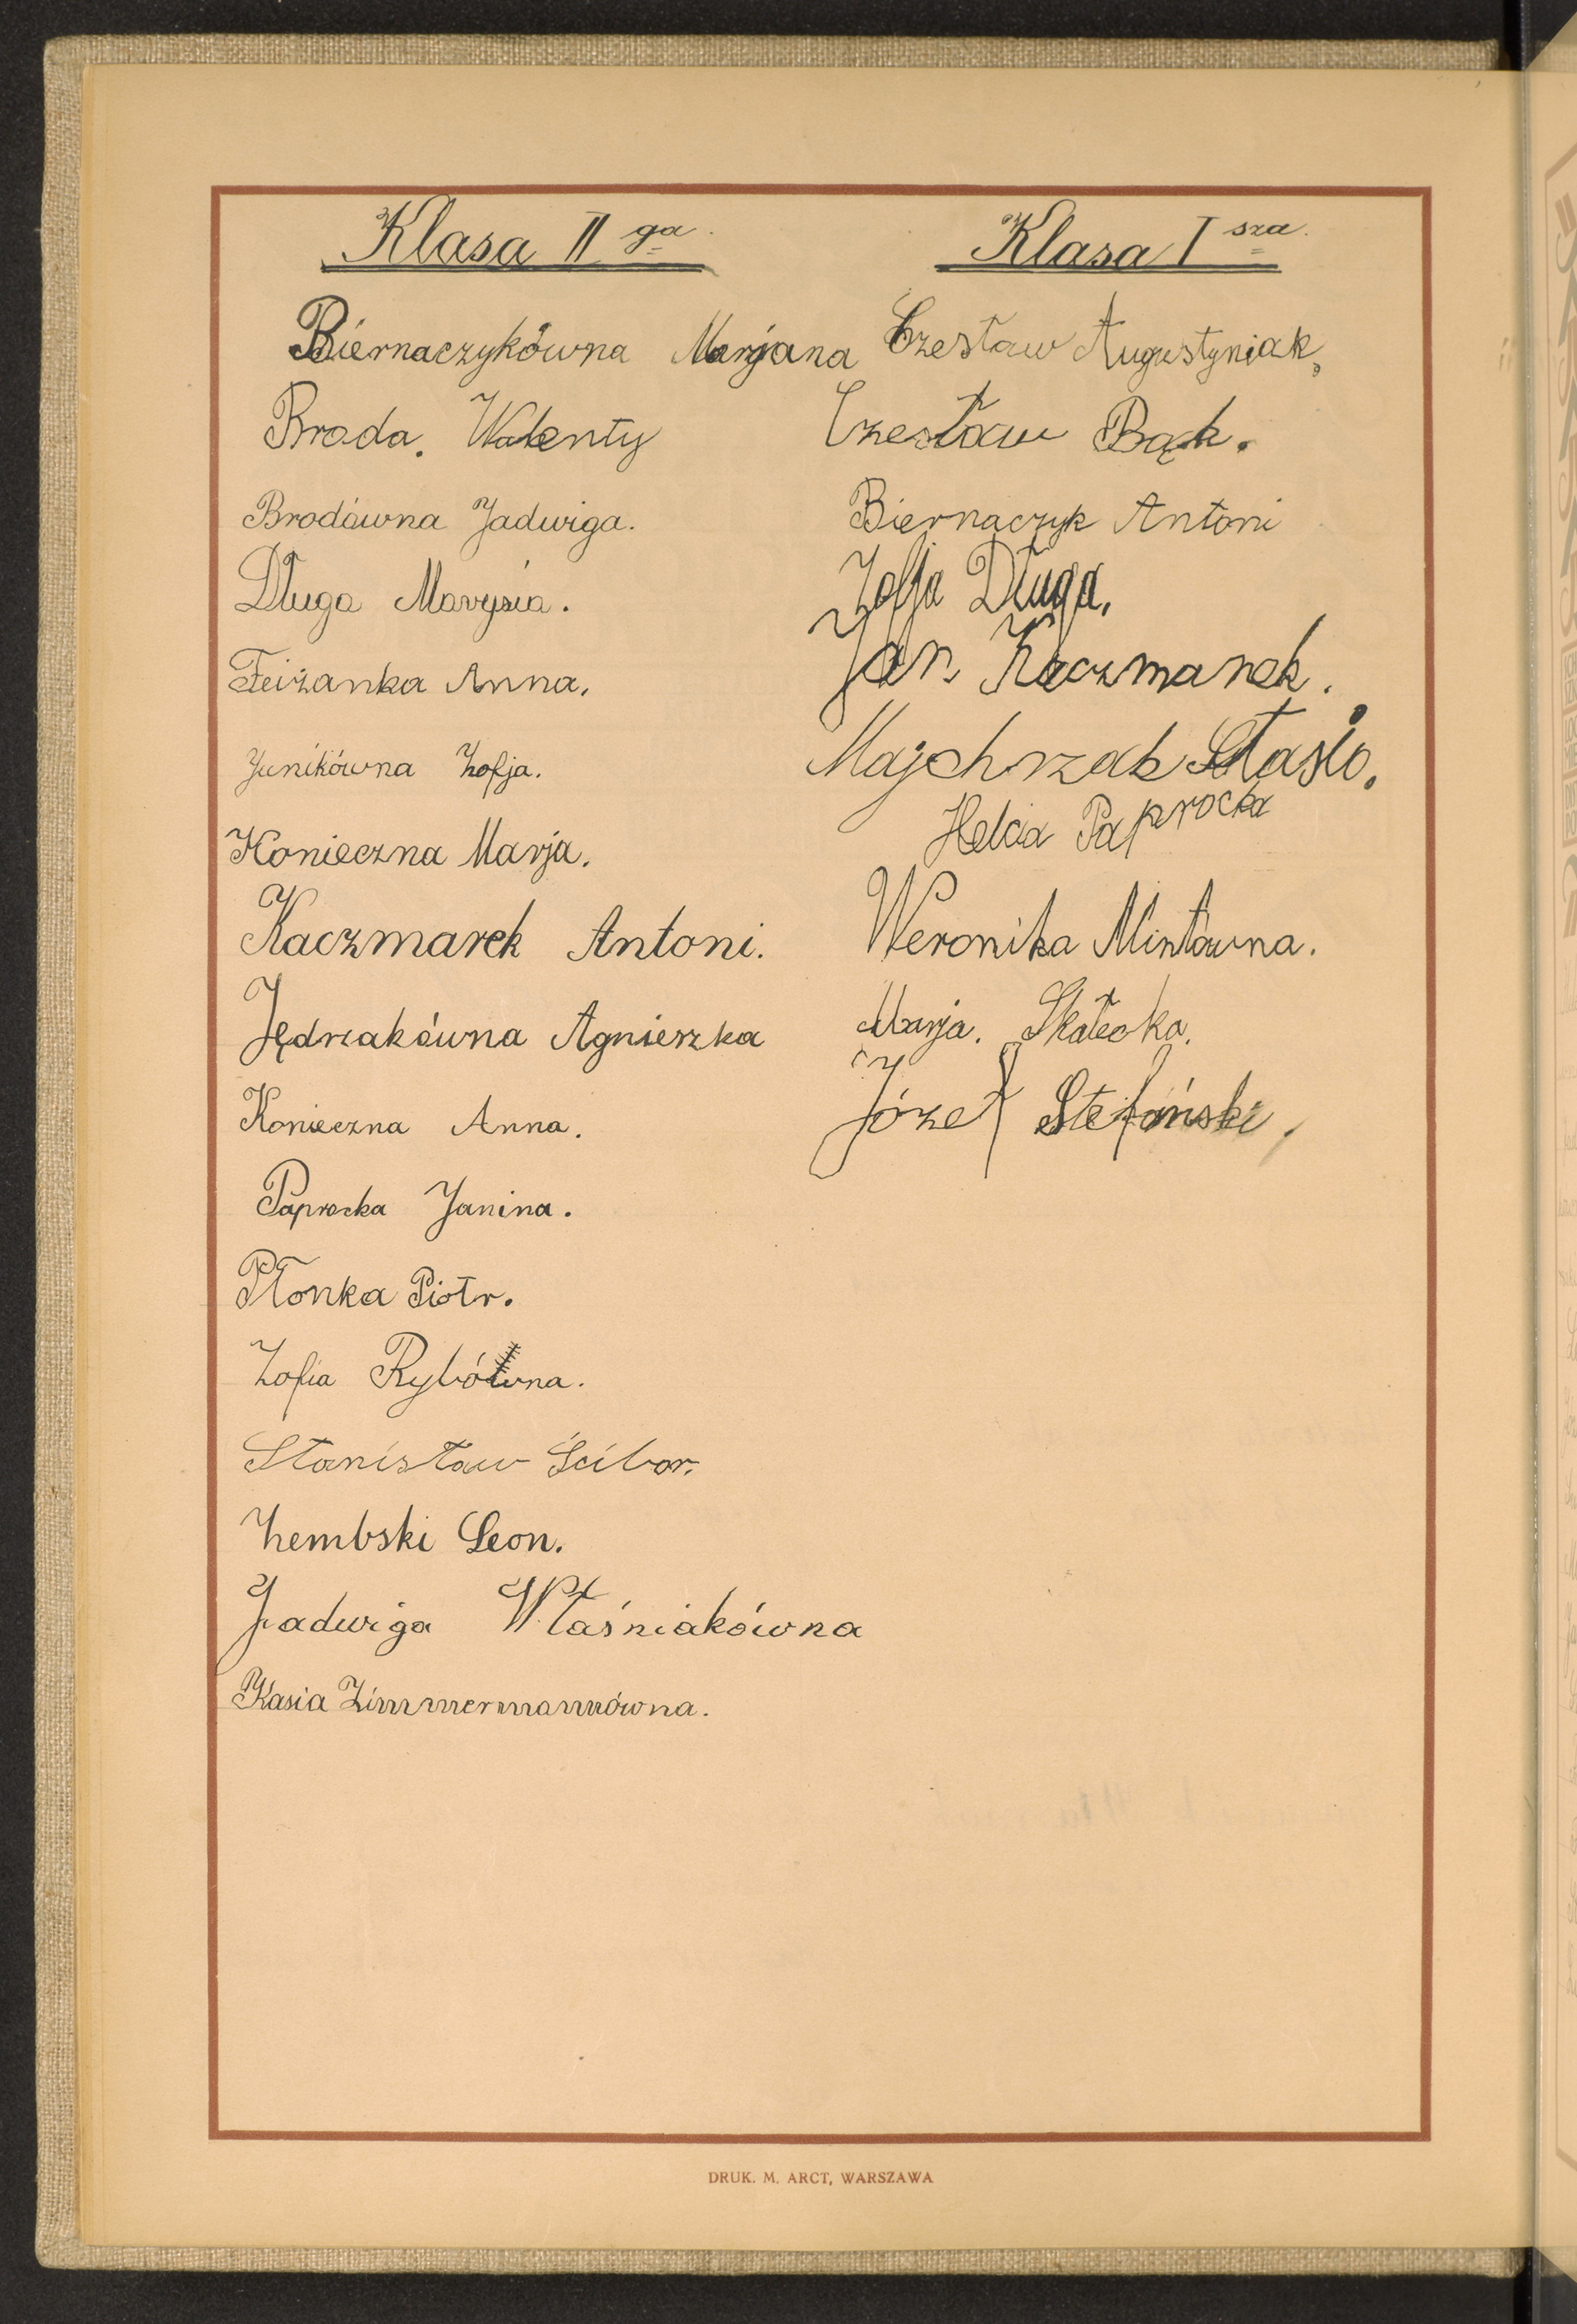 Klasa II ga.
Biernaczykówna Marjana
Broda. Walenty
Brodówna Jadwiga.
Długa Marysia.
Feiżanka Anna.
Junikówna Zofja.
Konieczna Marja.
Kaczmarek Antoni.
Jędrzakówna Agnieszka
Konieczna Anna.
Paprocka Janina.
Płonka Piotr.
Zofia Rybówna.
Stanisław Ścibor.
Zembski Leon.
Jadwiga Właśniakówna
Kasia Zimmermannówna.
Klasa I sza.
Czesław Augustyniak.
Czesław Bąk.
Biernaczyk Antoni
Zofja Długa.
Jan Kaczmarek.
Majchrzak Stasio.
Helcia Paprocka
Weronika Mintówna.
Marja. Skałecka.
Józef Stefański.
DRUK. M. ARCT, WARSZAWA